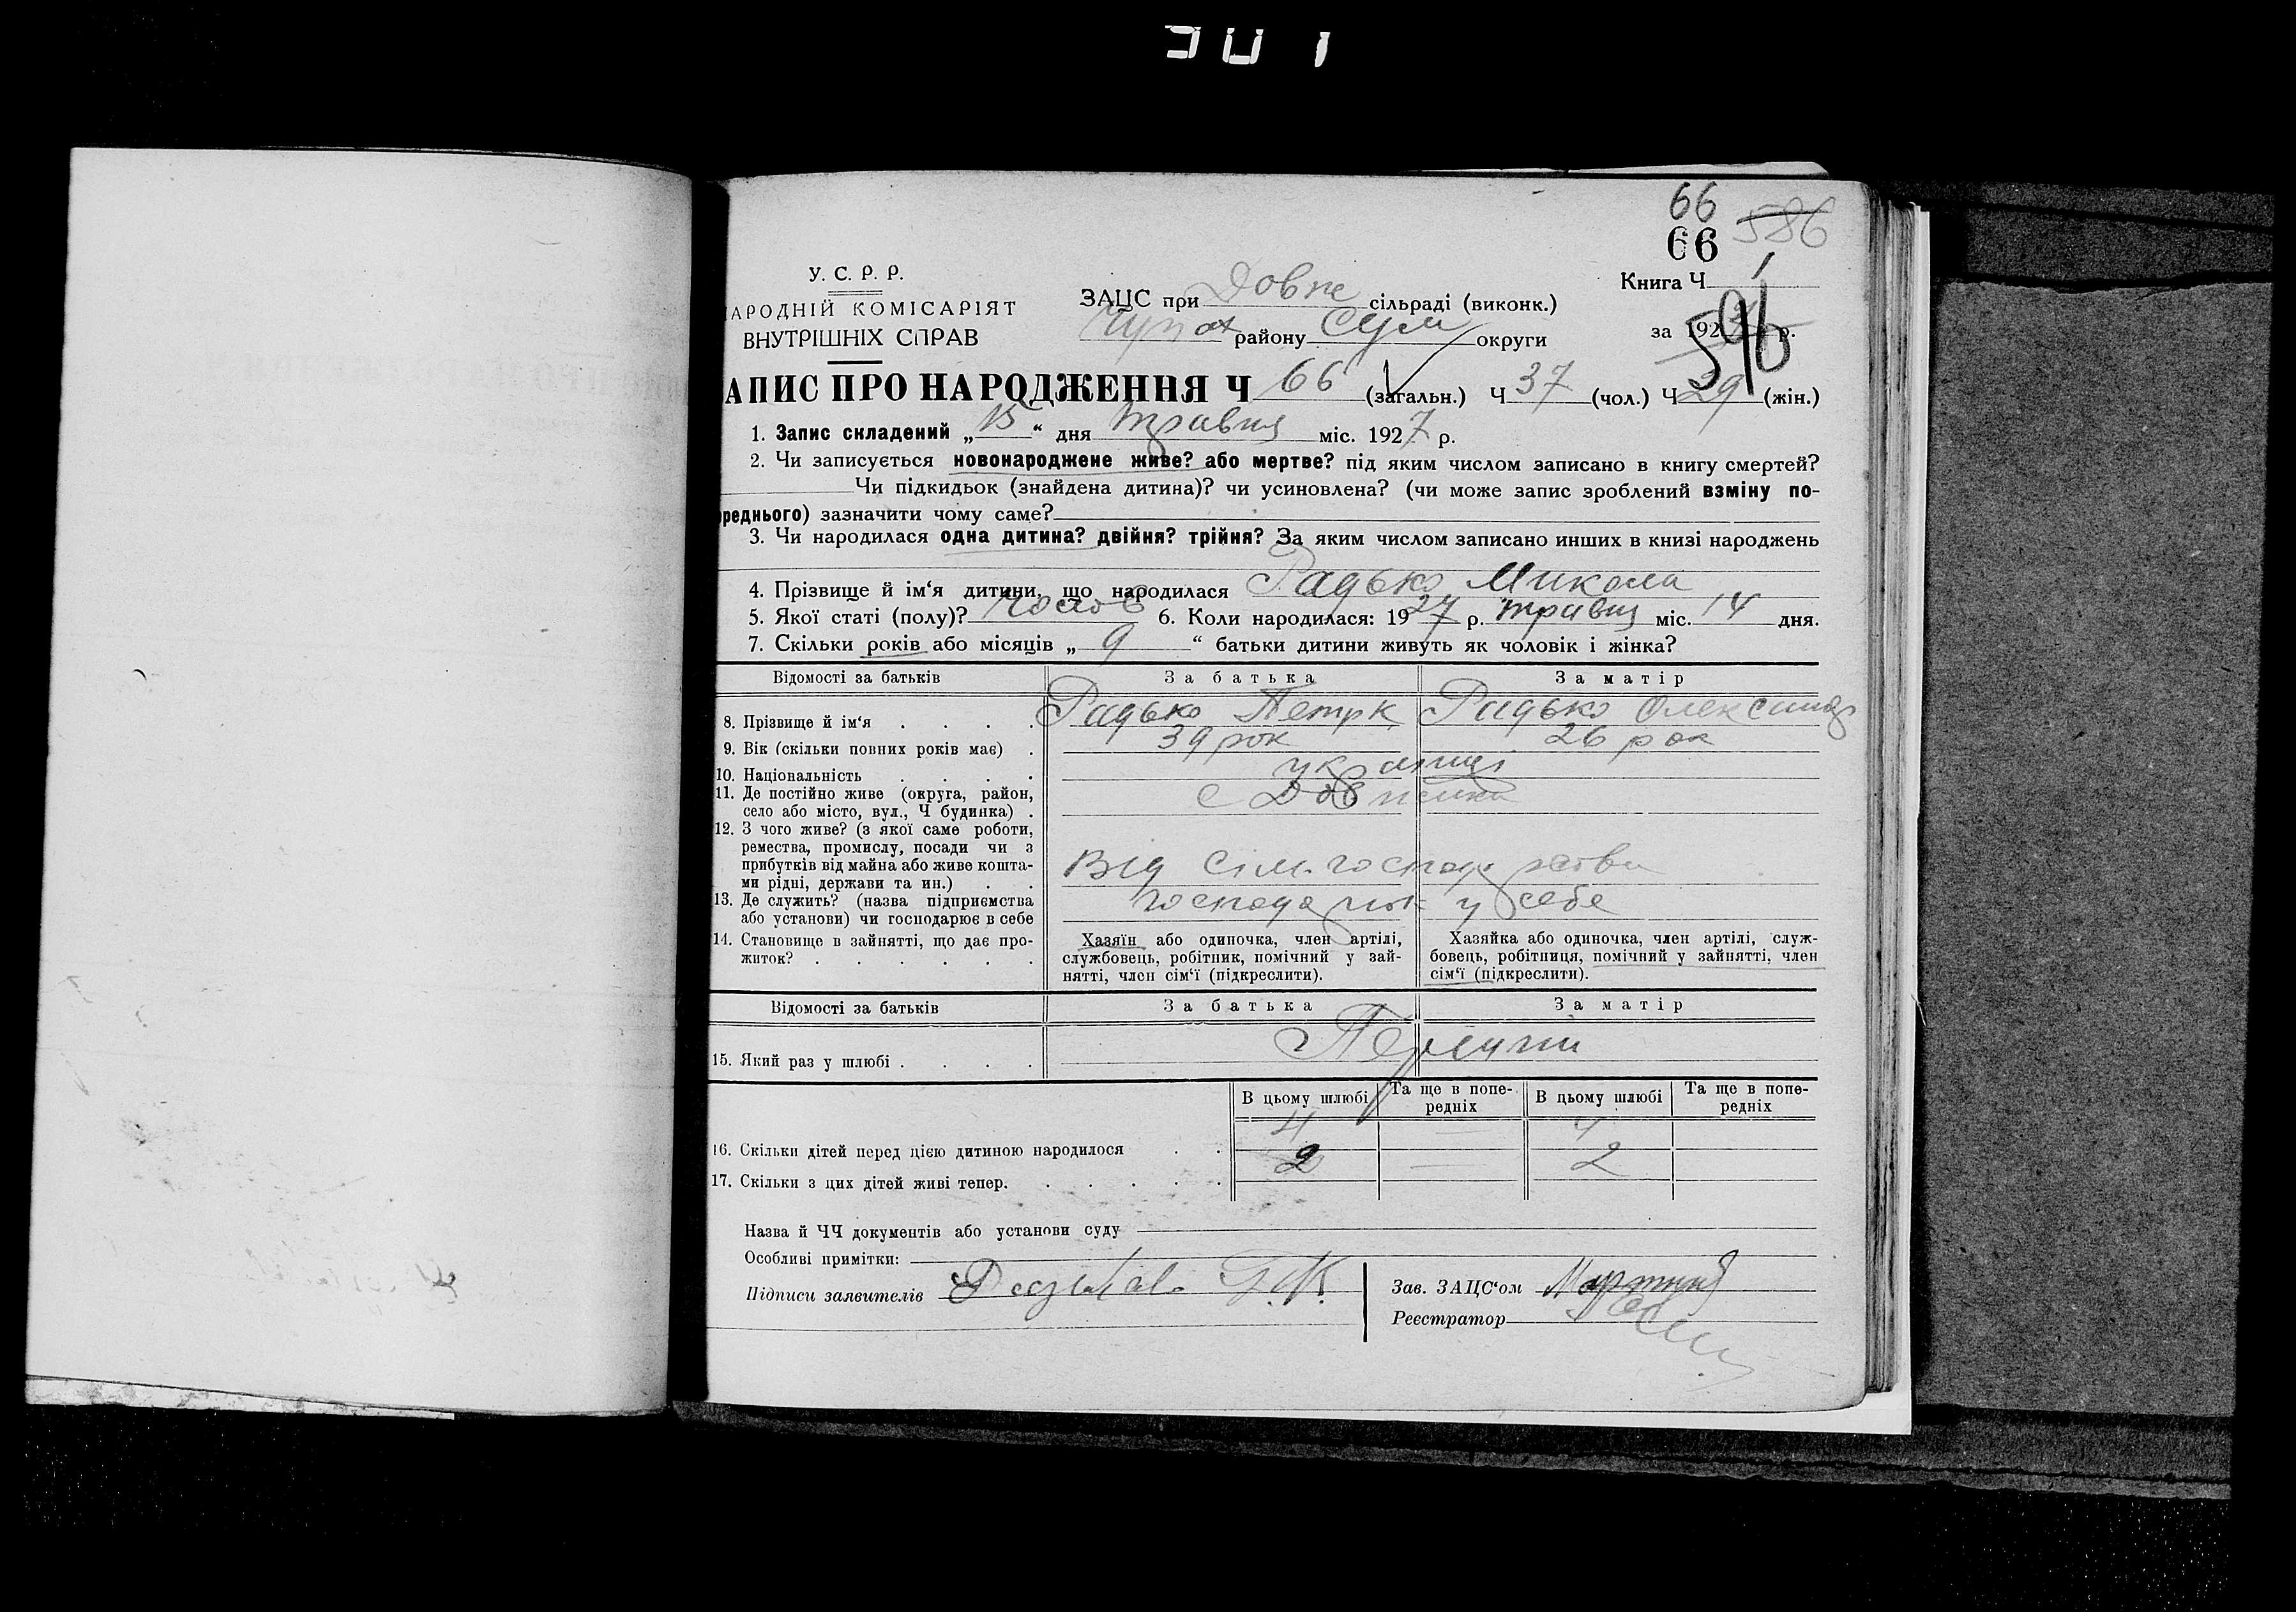 301
66
586
66
У. С. Р. Р.
АРОДНІЙ КОМІСАРІЯТ
ВНУТРІШНІХ СПРАВ
ЗАЦС при Довж сільраді (виконк.)
району Сум округи
Книга Ч 1
за 192 р.
596
АПИС ПРО НАРОДЖЕННЯ Ч 66 (загальн.) Ч 37 (чол.) Ч 29 (жін.)
1. Запис складений „ 15 “ дня травня міс. 1927 р.
2. Чи записується новонароджене живе? або мертве? під яким числом записано в книгу смертей?
Чи підкидьок (знайдена дитина)? чи усиновлена? (чи може запис зроблений взміну по-
реднього) зазначити чому саме?
3. Чи народилася одна дитина? двійня? трійня? За яким числом записано инших в книзі народжень
4. Прізвище й ім‘я дитини, що народилася Радько Микола
5. Якої статі (полу)? чолов 6. Коли народилася: 1927 р. травня міс. 14 дня.
7. Скільки років або місяців „ 9 “ батьки дитини живуть як чоловік і жінка?
Відомості за батьків За батька За матір
8. Прізвище й ім‘я . . . . Радько Петр К Радько Олександ
9. Вік (скільки повних років має) . 39 рок 26 рок
10. Національність . . . . українці
11. Де постійно живе (округа, район,
село або місто, вул., Ч будинка) . с
12. З чого живе? (з якої саме роботи,
ремества, промислу, посади чи з
прибутків від майна або живе кошта-
ми рідні, держави та ин.) . . Від сіль. господарства
13. Де служить? (назва підприємства
або установи) чи господарює в себе у себе
14. Становище в зайнятті, що дає про-
житок? . . . . . .
Хазяїн або одиночка, член артілі,
службовець, робітник, помічний у зай-
нятті, член сім‘ї (підкреслити).
Хазяйка або одиночка, член артілі, служ-
бовець, робітниця, помічний у зайнятті, член
сім‘ї (підкреслити).
Відомості за батьків За батька За матір
15. Який раз у шлюбі . . . . Перший
В цьому шлюбі Та ще в попе-
редніх В цьому шлюбі Та ще в попе-
редніх
16. Скільки дітей перед цією дитиною народилося . . 4 — 4
17. Скільки з цих дітей живі тепер. . . . . . 2 — 2
Назва й ЧЧ документів або установи суду
Особливі примітки:
Підписи заявителів
Зав. ЗАЦС‘ом
Реєстратор